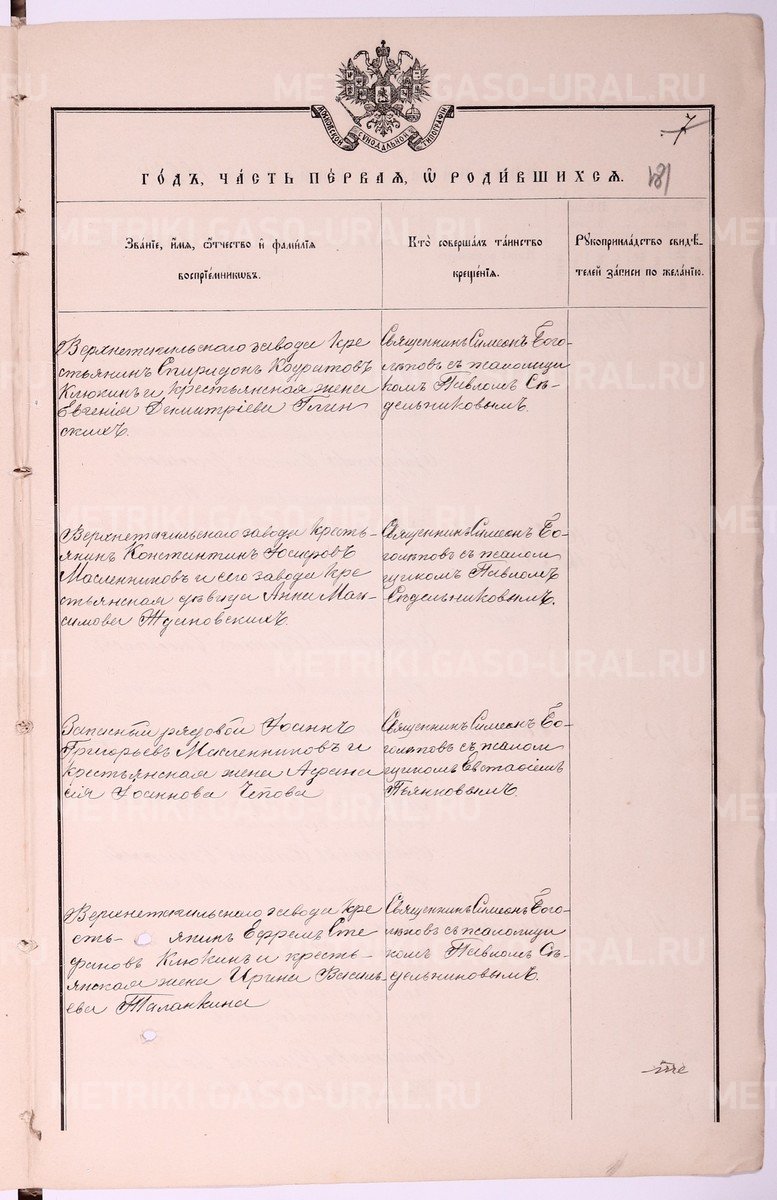 МОСКОВСКОЙ СѴНОДАЛЬНОЙ ТИПОГРАФІИ
7
181
ГОДЪ, ЧАСТЬ ПЕРВАЯ, Ѿ РОДИВШИХСЯ.
Званіе, имя, отчество и фамилія
воспріемниковъ.
Кто совершалъ таинство
крещенія.
Рукоприкладство свидѣ-
телей записи по желанію.
Верхнетагильскаго завода кре
стьянинъ Спиридонъ Кодратовъ
Клюкинъ и крестьянская жена
Евгенія Димитріева Глин
скихъ.
Священникъ Симеонъ Бого-
лѣповъ съ псаломщи
комъ Павломъ Сѣ-
дельниковымъ.
Верхнетагильскаго завода кресть-
янинъ Константинъ Іосифовъ
Масленниковъ и сего завода кре
стьянская дѣвица Анна Мак-
симова Ждановскихъ.
Священникъ Симеонъ Бо-
голѣповъ съ псалом
щикомъ Павломъ
Сѣдельниковымъ.
Запасный рядовой Іоаннъ
Григорьевъ Масленниковъ и
крестьянская жена Афана
сія Іоаннова
Священникъ Симеонъ Бо-
голѣповъ съ псалом
щикомъ Евстафіемъ
Пьянковымъ.
Верхнетагильскаго завода кре
сть- янинъ Ефремъ Сте
фановъ Клюкинъ и кресть-
янская жена Ирина Василь-
ева Таланкина
Священникъ Симеонъ Бого-
лѣповъ съ псаломщи
комъ Павломъ Сѣ-
дельниковымъ.
METRIKI.GASO-URAL.RU